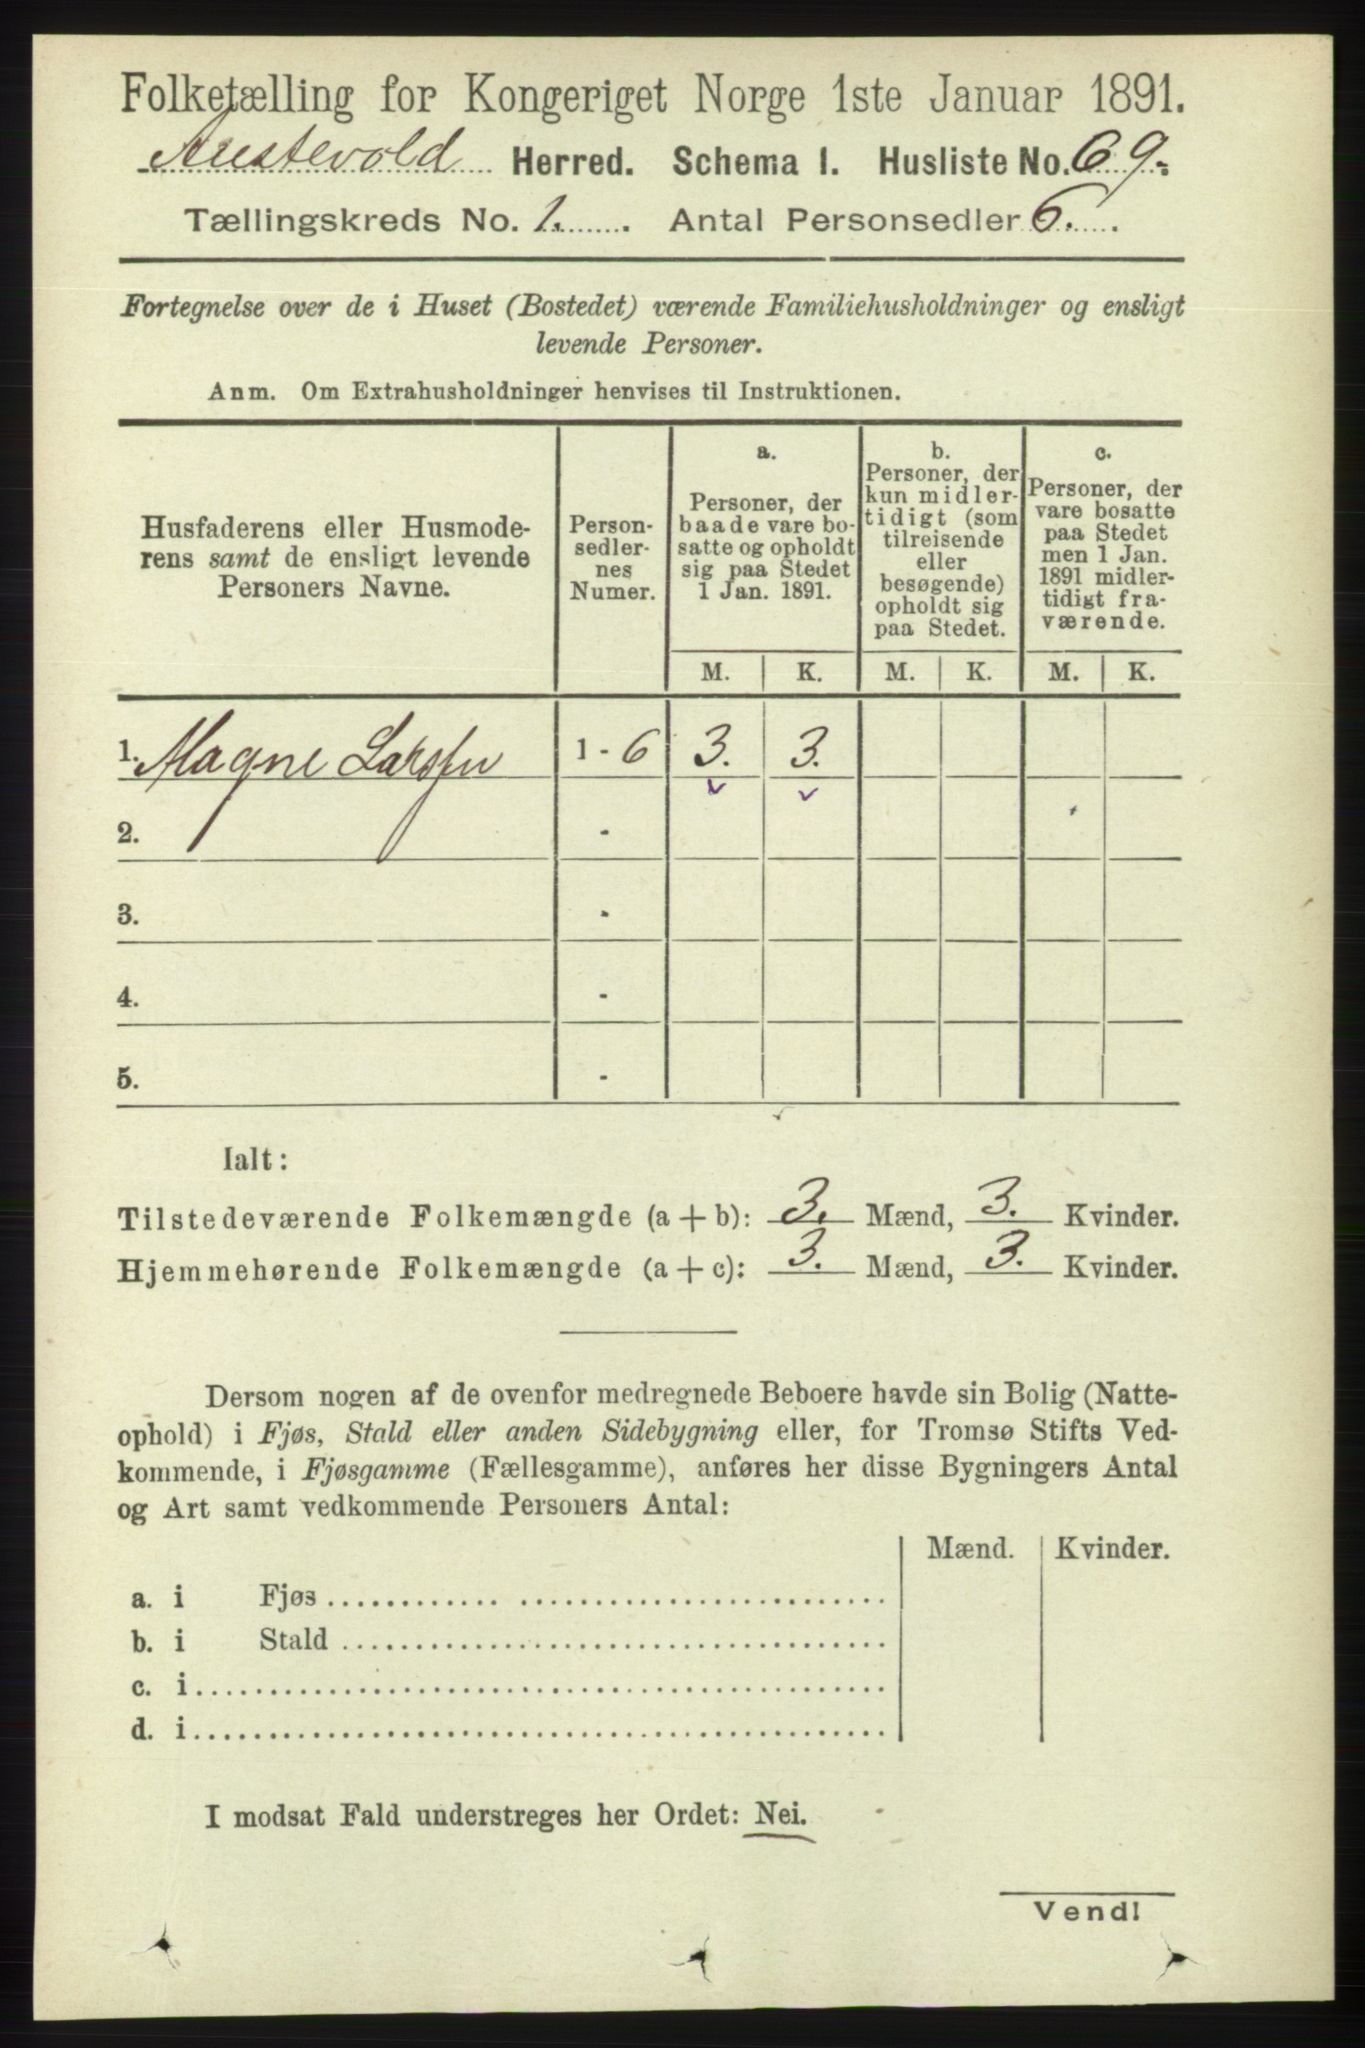 Folketælling for Kongeriget Norge 1ste Januar 1891.
Austevold Herred. Schema 1. Husliste No. 69.
Tællingskreds No. 1. Antal Personsedler 6.
Fortegnelse over de i Huset (Bostedet) værende Familiehusholdninger og ensligt
levende Personer.
Anm. Om Extrahusholdninger henvises til Instruktionen.
Husfaderens eller Husmode-
rens samt de ensligt levende
Personers Navne.
Person-
sedler-
nes
Numer.
a.
Personer, der
baade vare bo-
satte og opholdt
sig paa Stedet
1 Jan. 1891.
b.
Personer, der
kun midler-
tidigt (som
tilreisende
eller
besøgende)
opholdt sig
paa Stedet.
c.
Personer, der
vare bosatte
paa Stedet
men 1 Jan.
1891 midler-
tidigt fra-
værende.
M. K. M. K. M. K.
1. Magne Larsen 1 - 6 3. 3.
2. -
3. -
4. -
5. -
Ialt:
Tilstedeværende Folkemængde (a + b): 3. Mænd, 3. Kvinder.
Hjemmehørende Folkemængde (a + c): 3. Mænd, 3. Kvinder.
Dersom nogen af de ovenfor medregnede Beboere havde sin Bolig (Natte-
ophold) i Fjøs, Stald eller anden Sidebygning eller, for Tromsø Stifts Ved-
kommende, i Fjøsgamme (Fællesgamme), anføres her disse Bygningers Antal
og Art samt vedkommende Personers Antal:
Mænd. Kvinder.
a. i Fjøs
b. i Stald
c. i
d. i
I modsat Fald understreges her Ordet: Nei.
Vend!